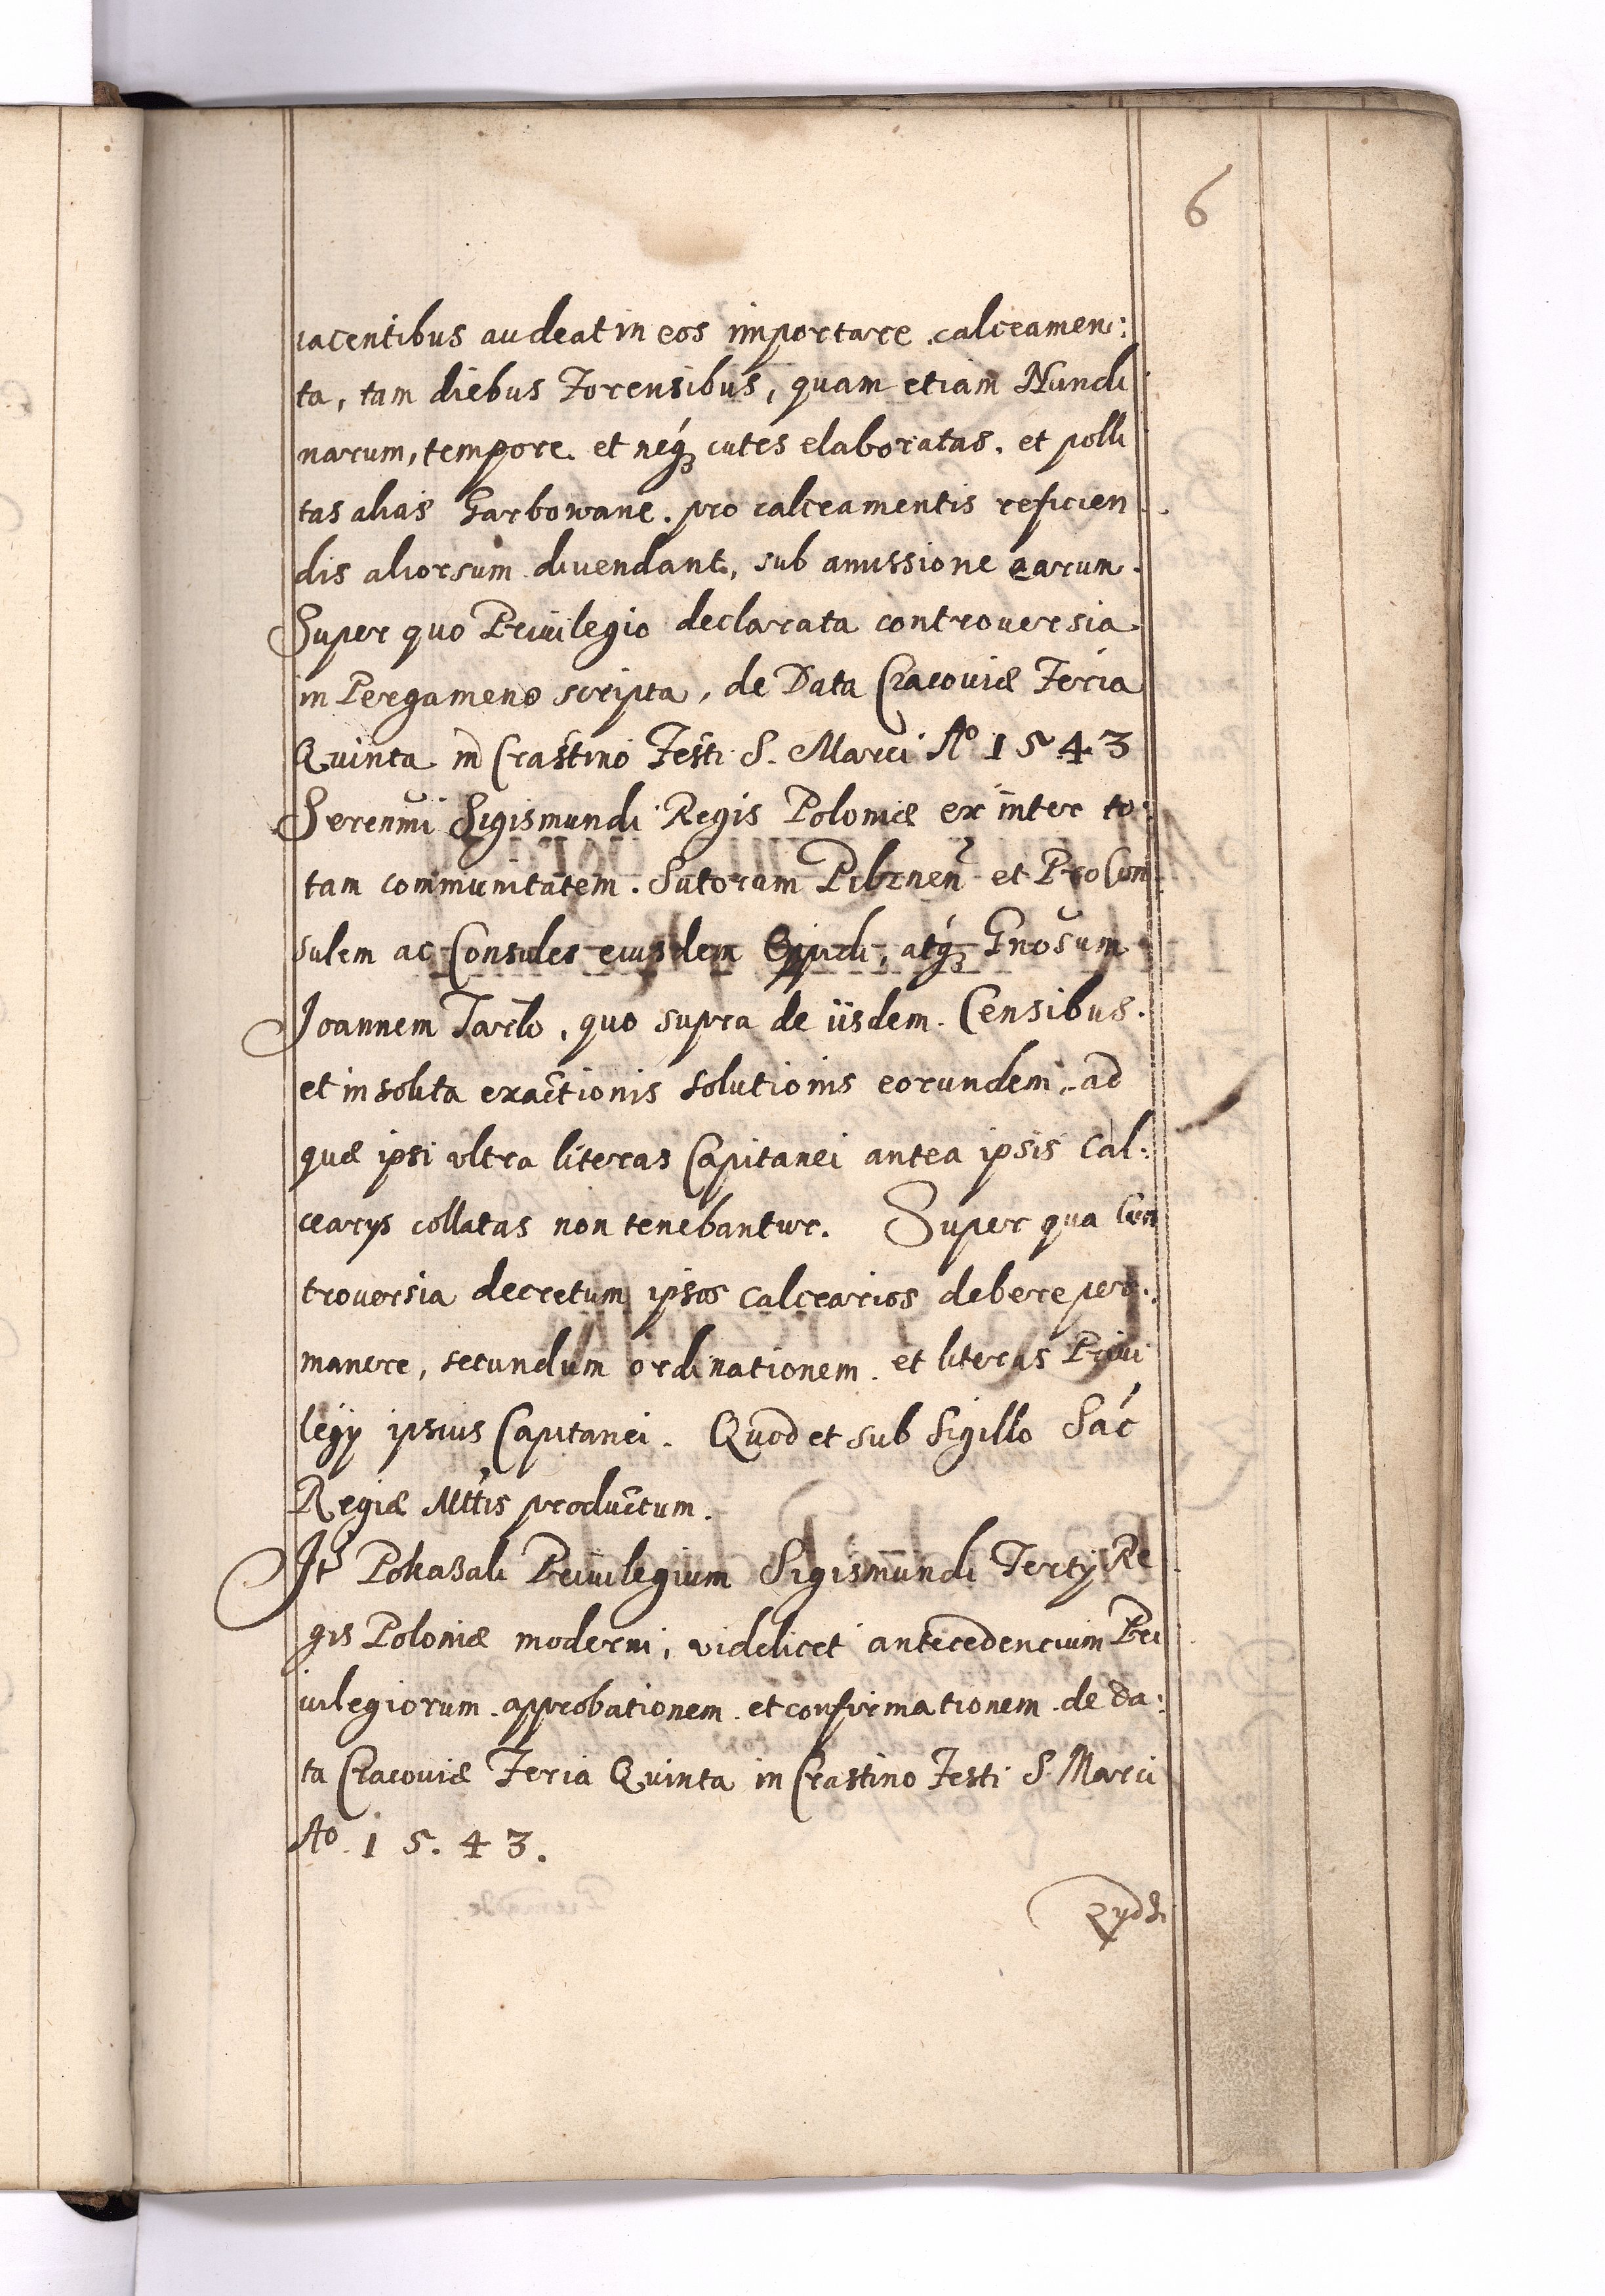 6
iacentibus audeat in eos importare calceamen:
ta, tam diebus Forensibus, quam etiam Nundi
narum, tempore et neq3 cutes elaboratas. et polli
tas alias Garbowane. pro calceamentis reficien
dis aliorsum divendant, sub amissione earum.
Super quo Privilegio declarata controversia
in Pergameno scripta, de Data Cracoviæ Feria
Quinta in Crastino Festi S. Marci Aº 1543
Serenmi Sigismundi Regis Poloniæ ex inter to:
tam communitatem. Sutorum Pilznen et ProCon
sulem ac Consules eiusdem Oppidi, atq3 Gnosum
Joannem Tarlo, quo supra de iisdem. Censibus.
et insolita exactionis solutionis eorundem, ad
quæ ipsi ultra literas Capitanei antea ipsis Cal:
cearys collatas non tenebantur. Super qua Con
troversia decretum ipsos calcearios debere per:
manere, secundum ordinationem. et literas Privi
legy ipsius Capitanei. Quod et sub Sigillo Sac
Regiæ Mttis productum.
It Pokazali Privilegium Sigismundi Tertij Re
gis Poloniæ moderni, videlicet antecedencium Pri
vilegiorum. approbationem. et confirmationem. de Da:
ta Cracoviæ Feria Quinta in Crastino Festi S. Marci
Ao. 1 5. 4 3.